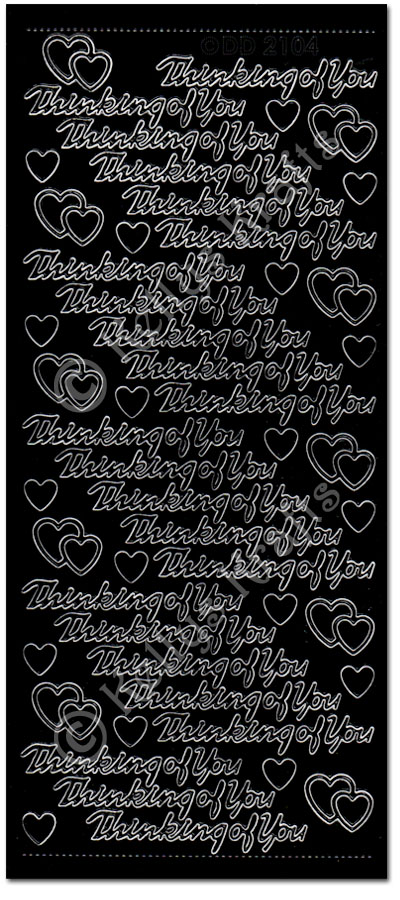 ©DD 2104
Thinking of You
Thinking of You
Thinking of You
Thinking of You
Thinking of You
Thinking of You
Thinking of You
Thinking of You
Thinking of You
Thinking of You
Thinking of You
Thinking of You
Thinking of You
Thinking of You
Thinking of You
Thinking of You
Thinking of You
Thinking of You
Thinking of You
Thinking of You
Thinking of You
Thinking of You
Thinking of You
Thinking of You
© Kellys Krafts
© Kellys Krafts